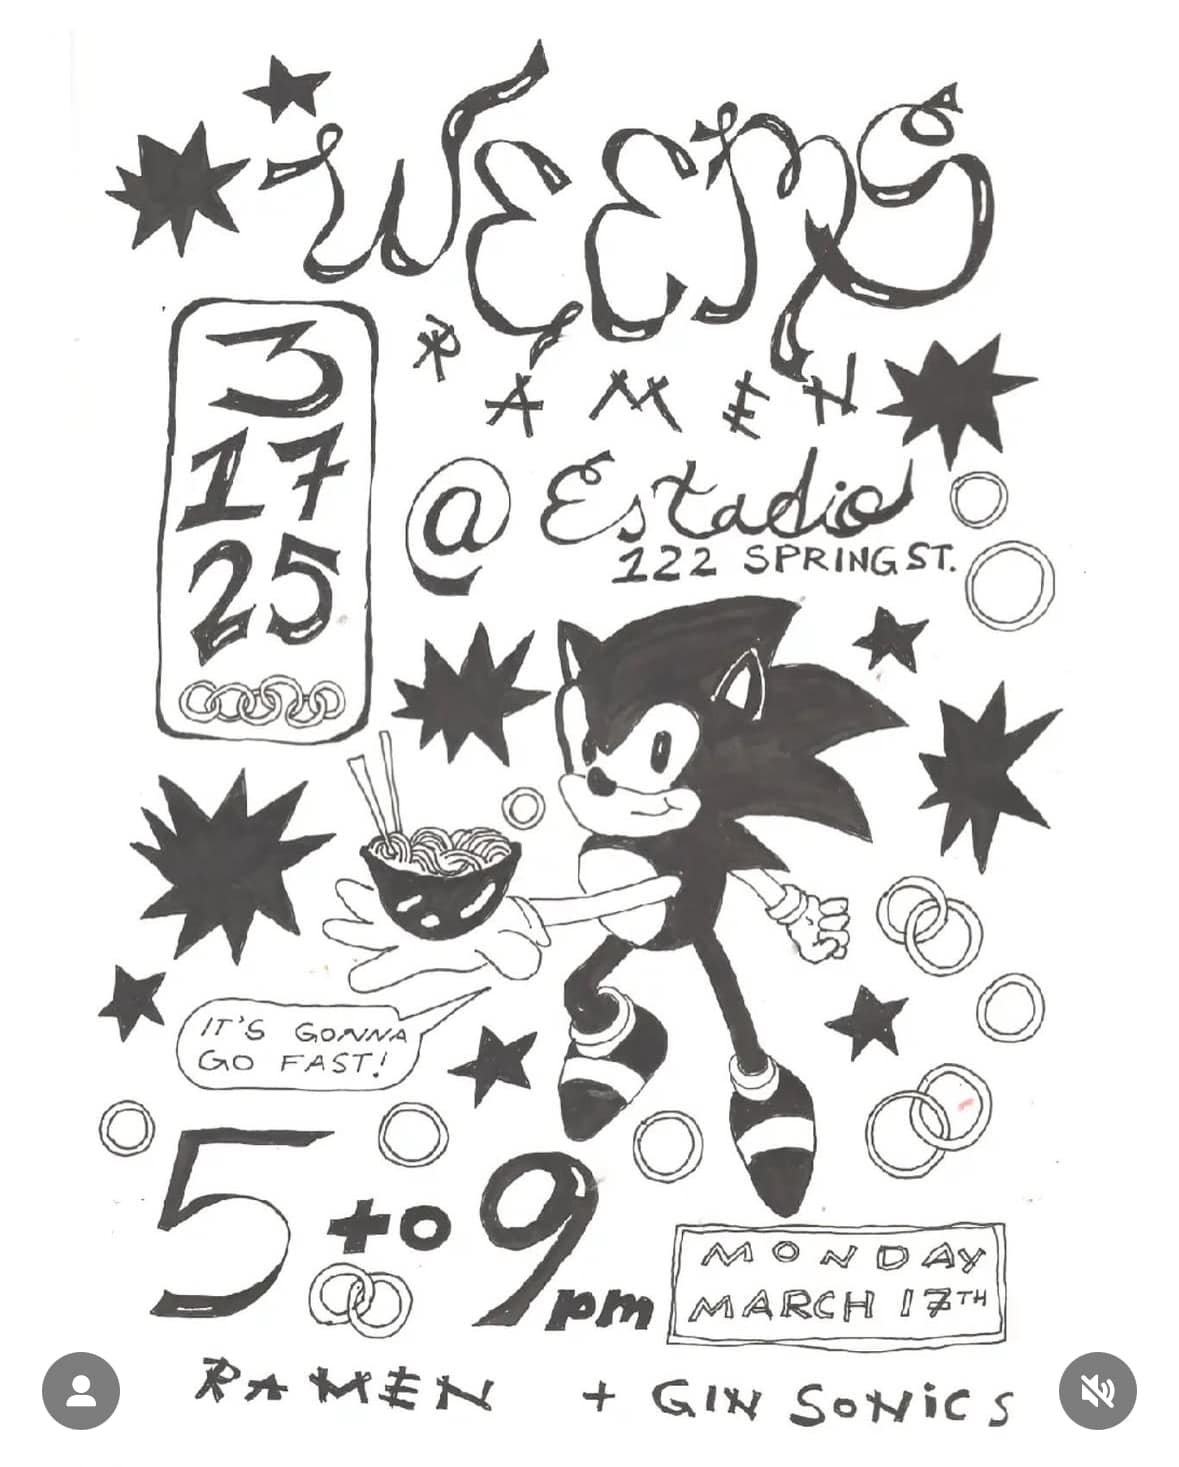 WEEMS
RAMEN
3
17
25
@ Estadio
122 SPRING ST.
IT'S GONNA
GO FAST!
5 to 9pm
MONDAY
MARCH 17TH
RAMEN + GIN SONICS